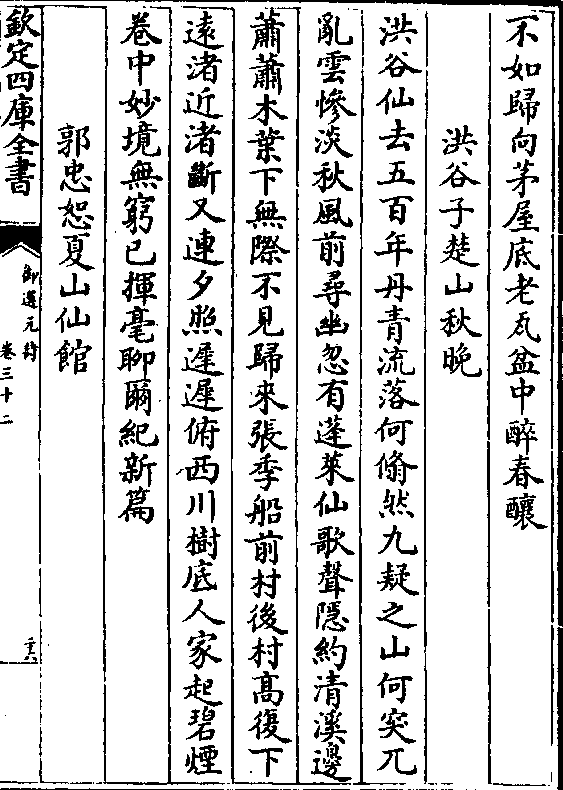 不如歸向茅屋底老瓦盆中醉春釀
洪谷子楚山秋晚
洪谷仙去五百年丹青流落何翛然九疑之山何突兀
亂雲慘淡秋風前尋幽忽有蓬萊仙歌聲隱約清溪邊
蕭蕭木葉下無際不見歸來張季船前村後村高復下
遠渚近渚斷又連夕照遲遲俯西川樹底人家起碧煙
卷中妙境無窮已揮毫聊爾紀新篇
郭忠恕夏山仙館
欽定四庫全書
御選元詩
卷三十二